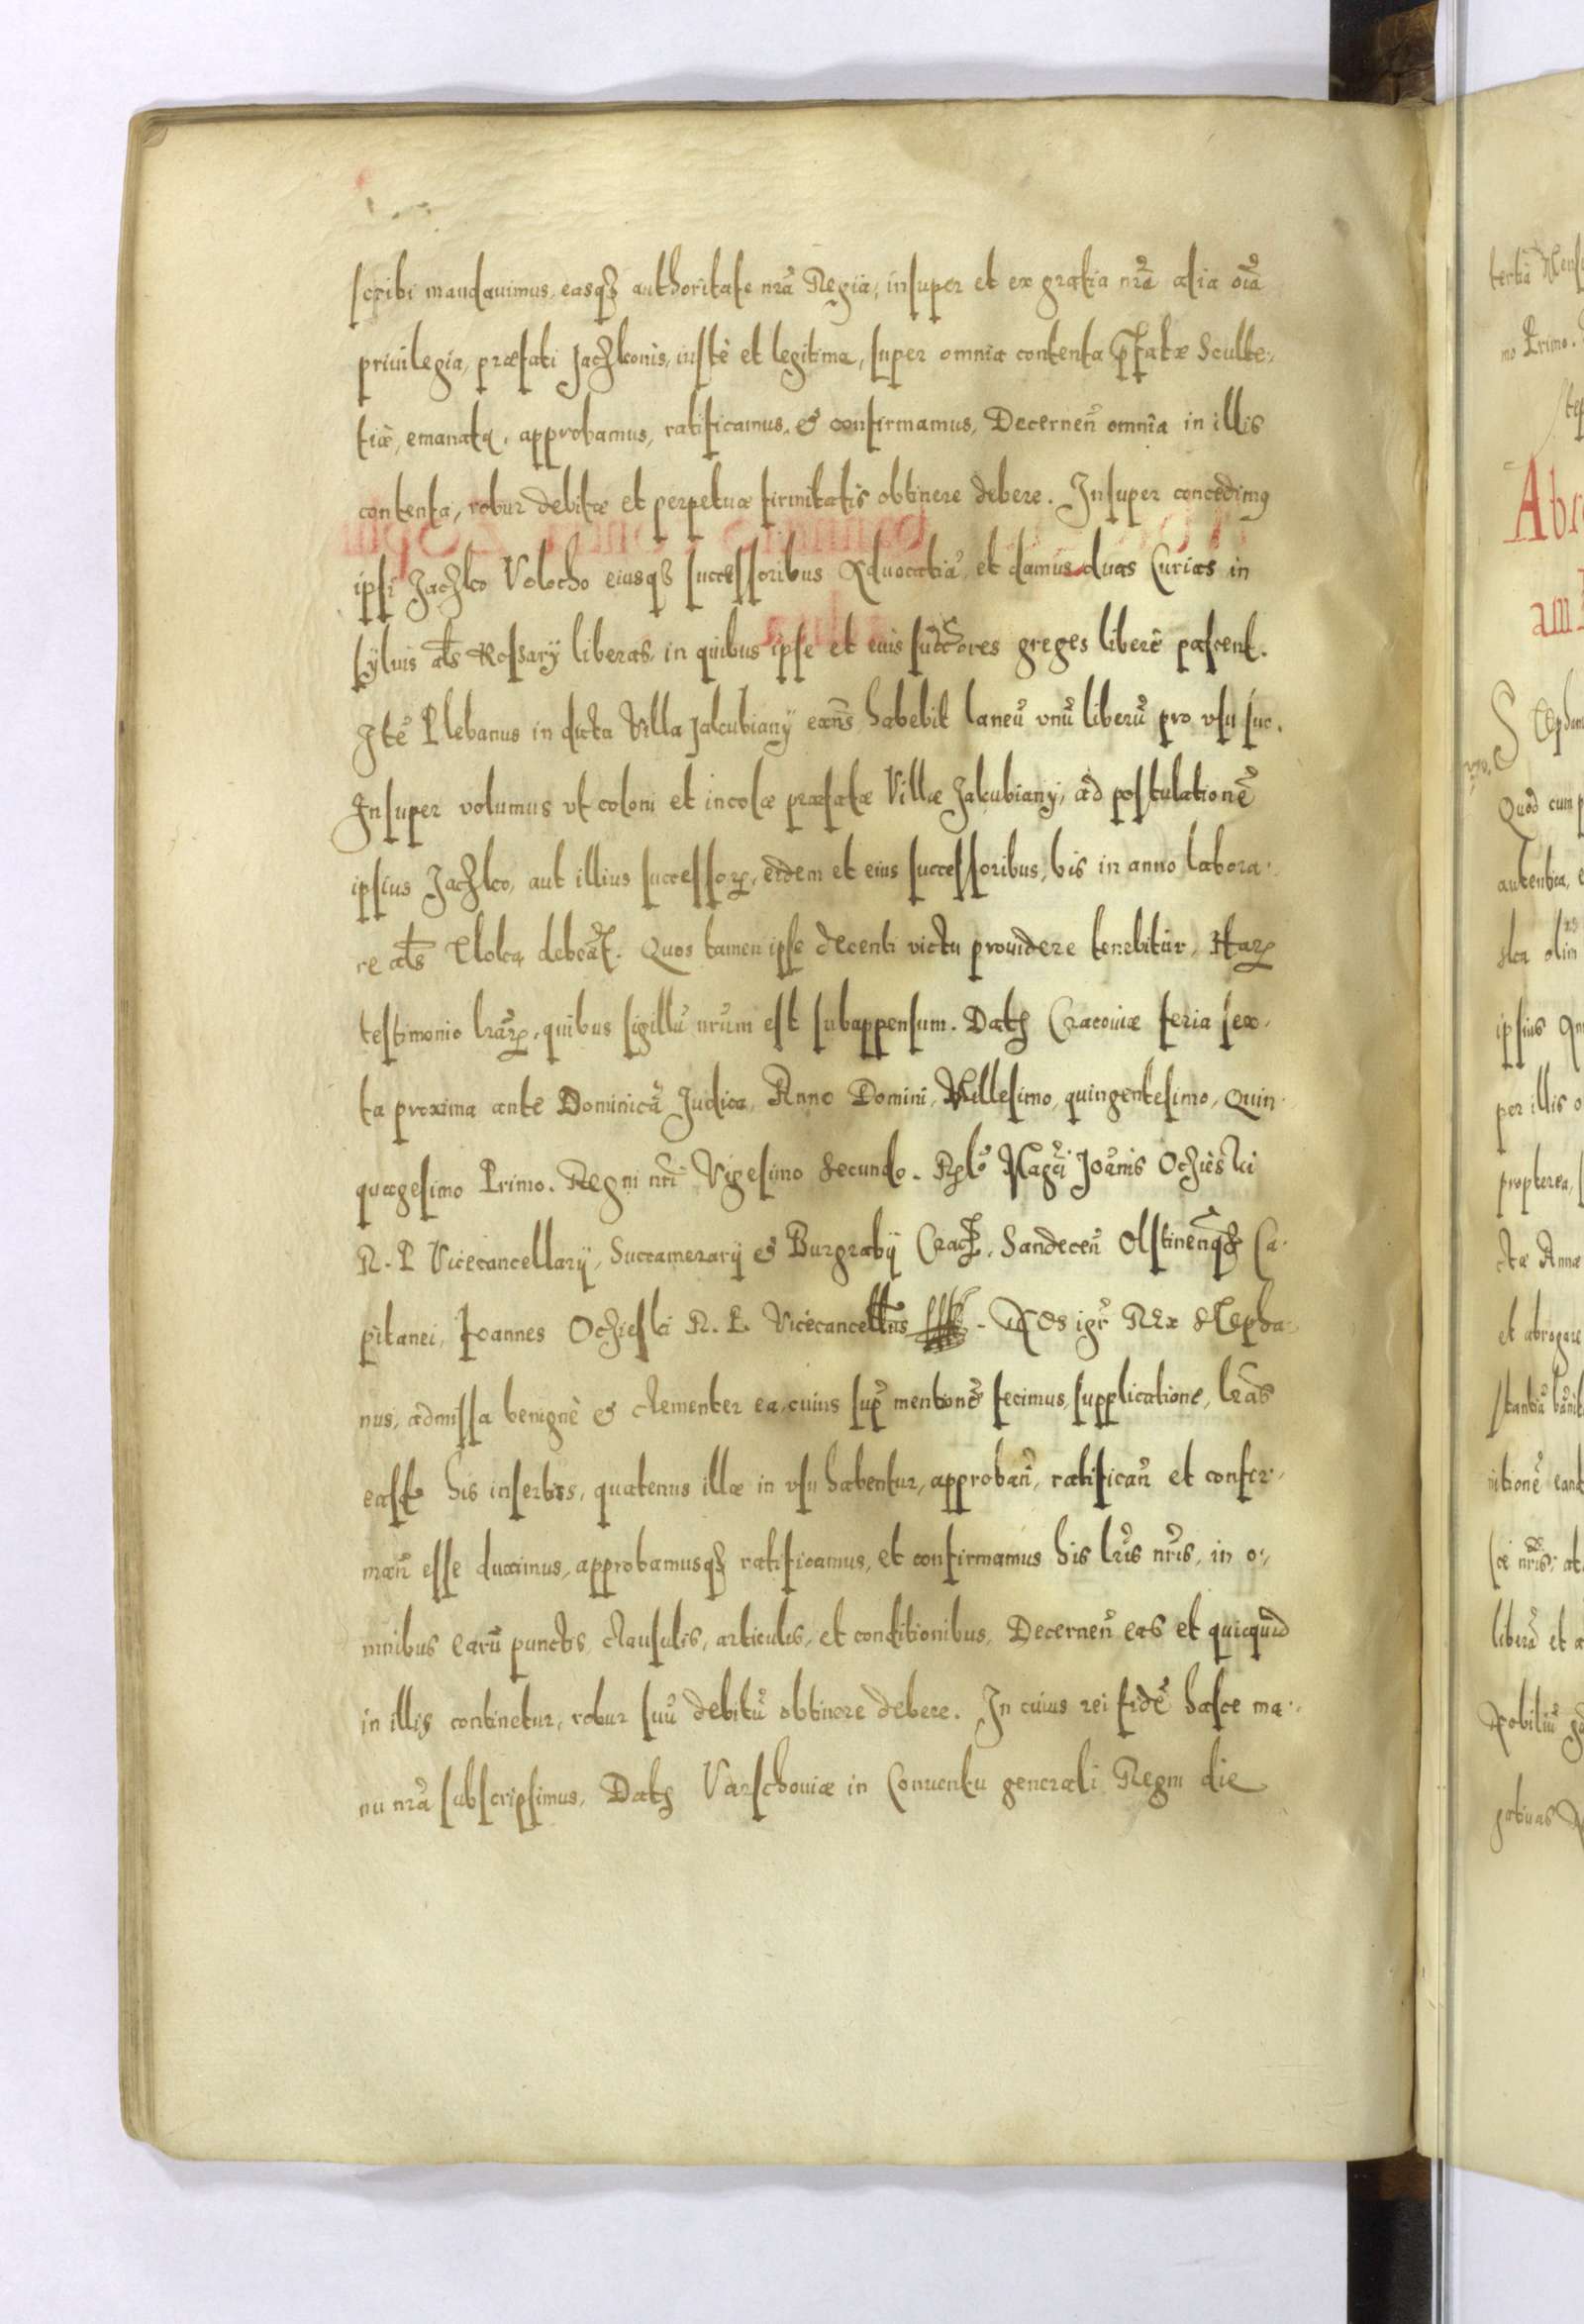 scribi mandauimus, easqȝ authoritate nrã Regia, insuper et ex gratia nrã alia oĩa
priuilegia, præfati Jaczkonis, iustè et legitima, super omnia contenta pfatæ Sculte-
tiæ, emanata, approbamus, ratificamus, & confirmamus, Decernen̄ omnia in illis
contenta, robur debitæ et perpetuæ firmitatis obtinere debere. Insuper concedimꝰ
ipsi Jaczko Volocho eiusqȝ successoribus Aduocatiã, et damus duas Curias in
syluis als Rossary liberas, in quibus ipse et eius succores greges liberè pascent.
Itẽ Plebanus in dicta Villa Jakubiany exn̄s habebit laneũ vnũ liberũ pro vsu suo.
Insuper volumus vt coloni et incolæ præfatæ Villæ Jakubiany, ad postulationẽ
ipsius Jaczko, aut illius successoꝝ, eidem et eius successoribus, bis in anno labora-
re als Tloka debeãt. Quos tamen ipse decenti victu prouidere tenebitur, Haꝝ
testimonio lrãꝝ, quibus sigillũ nrũm est subappensum. Datȝ Cracouiæ feria sex-
ta proxima ante Dominicã Judica, Anno Domini, Millesimo, quingentesimo, Quin-
quagesimo Primo. Regni nrĩ Vigesimo Secundo. Rlõ Magcĩ Joãnis Oczieski
R. P. Vicecancellarÿ, Succamerarÿ & Burgrabÿ Crac, Sandecen̄ Olstinenqȝ Ca-
pitanei, Joannes Oczieski R. P. Vicecancellus - Nos igr̃ REx STepha-
nus, admissa benignè & clementer ea, cuius sup mentionẽ fecimus, supplicatione, lrãs
easd his insertas, quatenus illæ in vsu habentur, approban̄, ratifican̄ et confir-
man̄ esse duximus, approbamusqȝ ratificamus, et confirmamus his lrĩs nrĩs, in o-
mnibus earũ punctis, clausulis, articulis, et conditionibus, Decernen̄ eas et quicquid
in illis continetur, robur suũ debitũ obtinere debere. In cuius rei fidẽ hasce ma-
nu nrã subscripsimus, Datȝ Varschouiæ in Conuentu generali Regni die